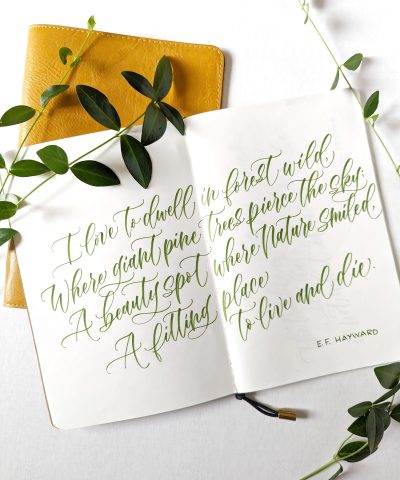 I love to dwell in forest wild,
Where giant pine trees pierce the sky;
A beauty spot where Nature smiled,
A fitting place
to live and die.
E.F. HAYWARD